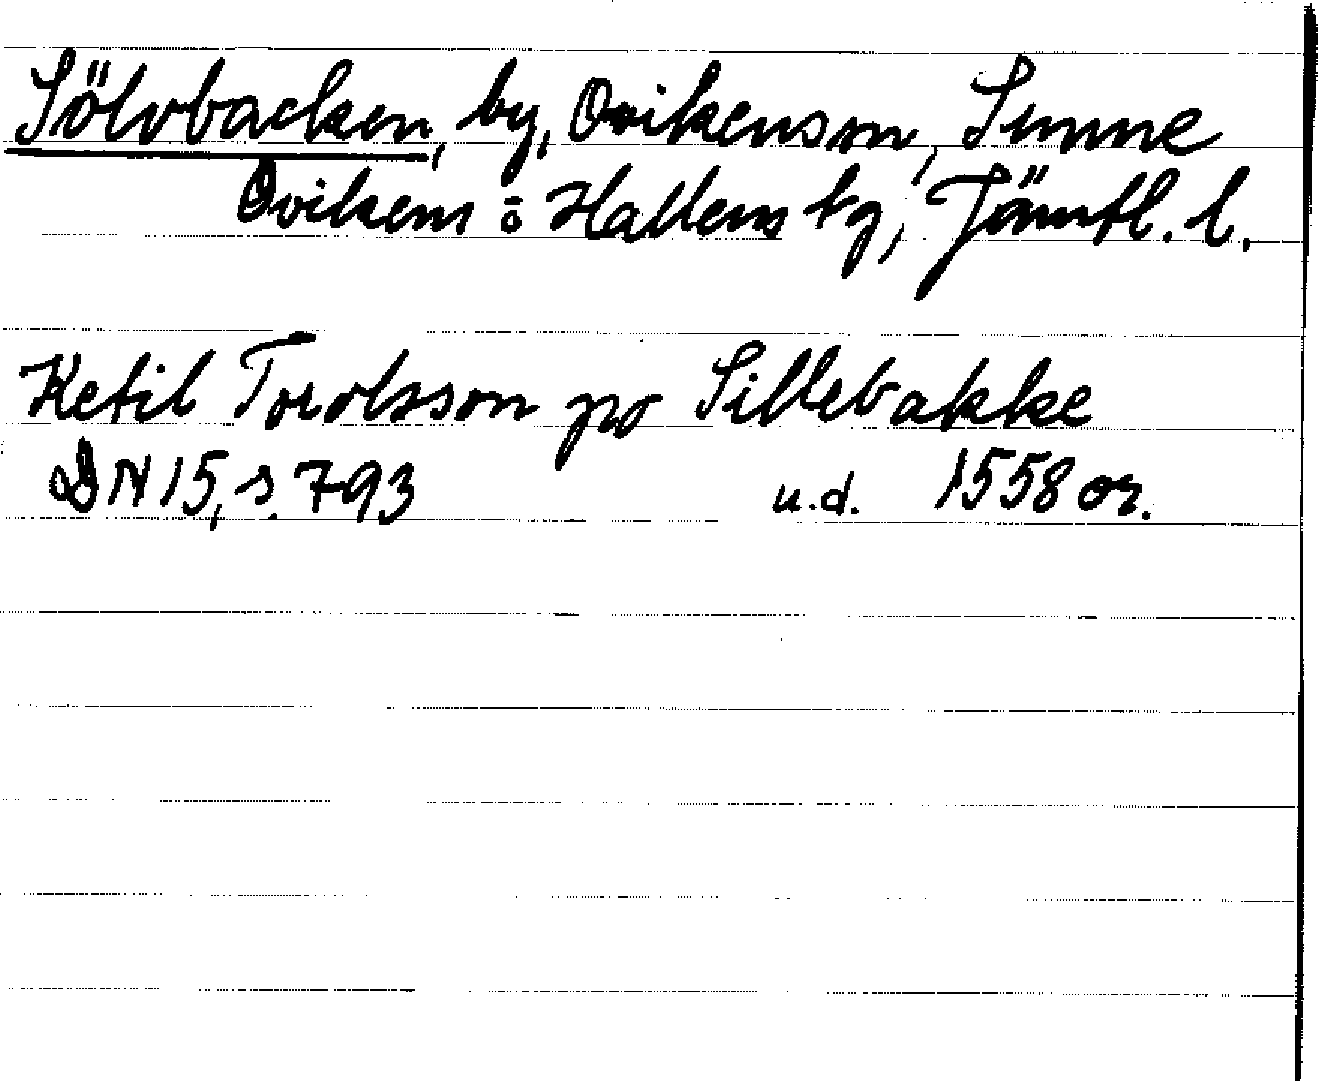 Sölvbacken, by, Ovikens sn, Sunne
Ovikens o Hallens tg, Jämtl. l.
Ketil Torolsson po Sillebakke
DN 15, s. 793 u.d. 1558 or.